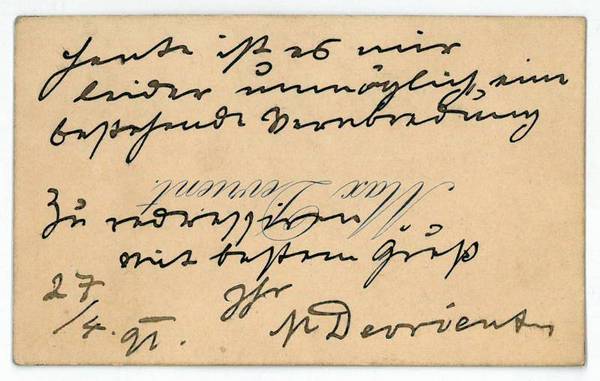 Heute ist es mir
leider unmöglich, eine
bestehende Verabredung
Max Devrient.
Zu redressiren
mit bestem Gruß
Ihr
27/4. 91.
M Devrient